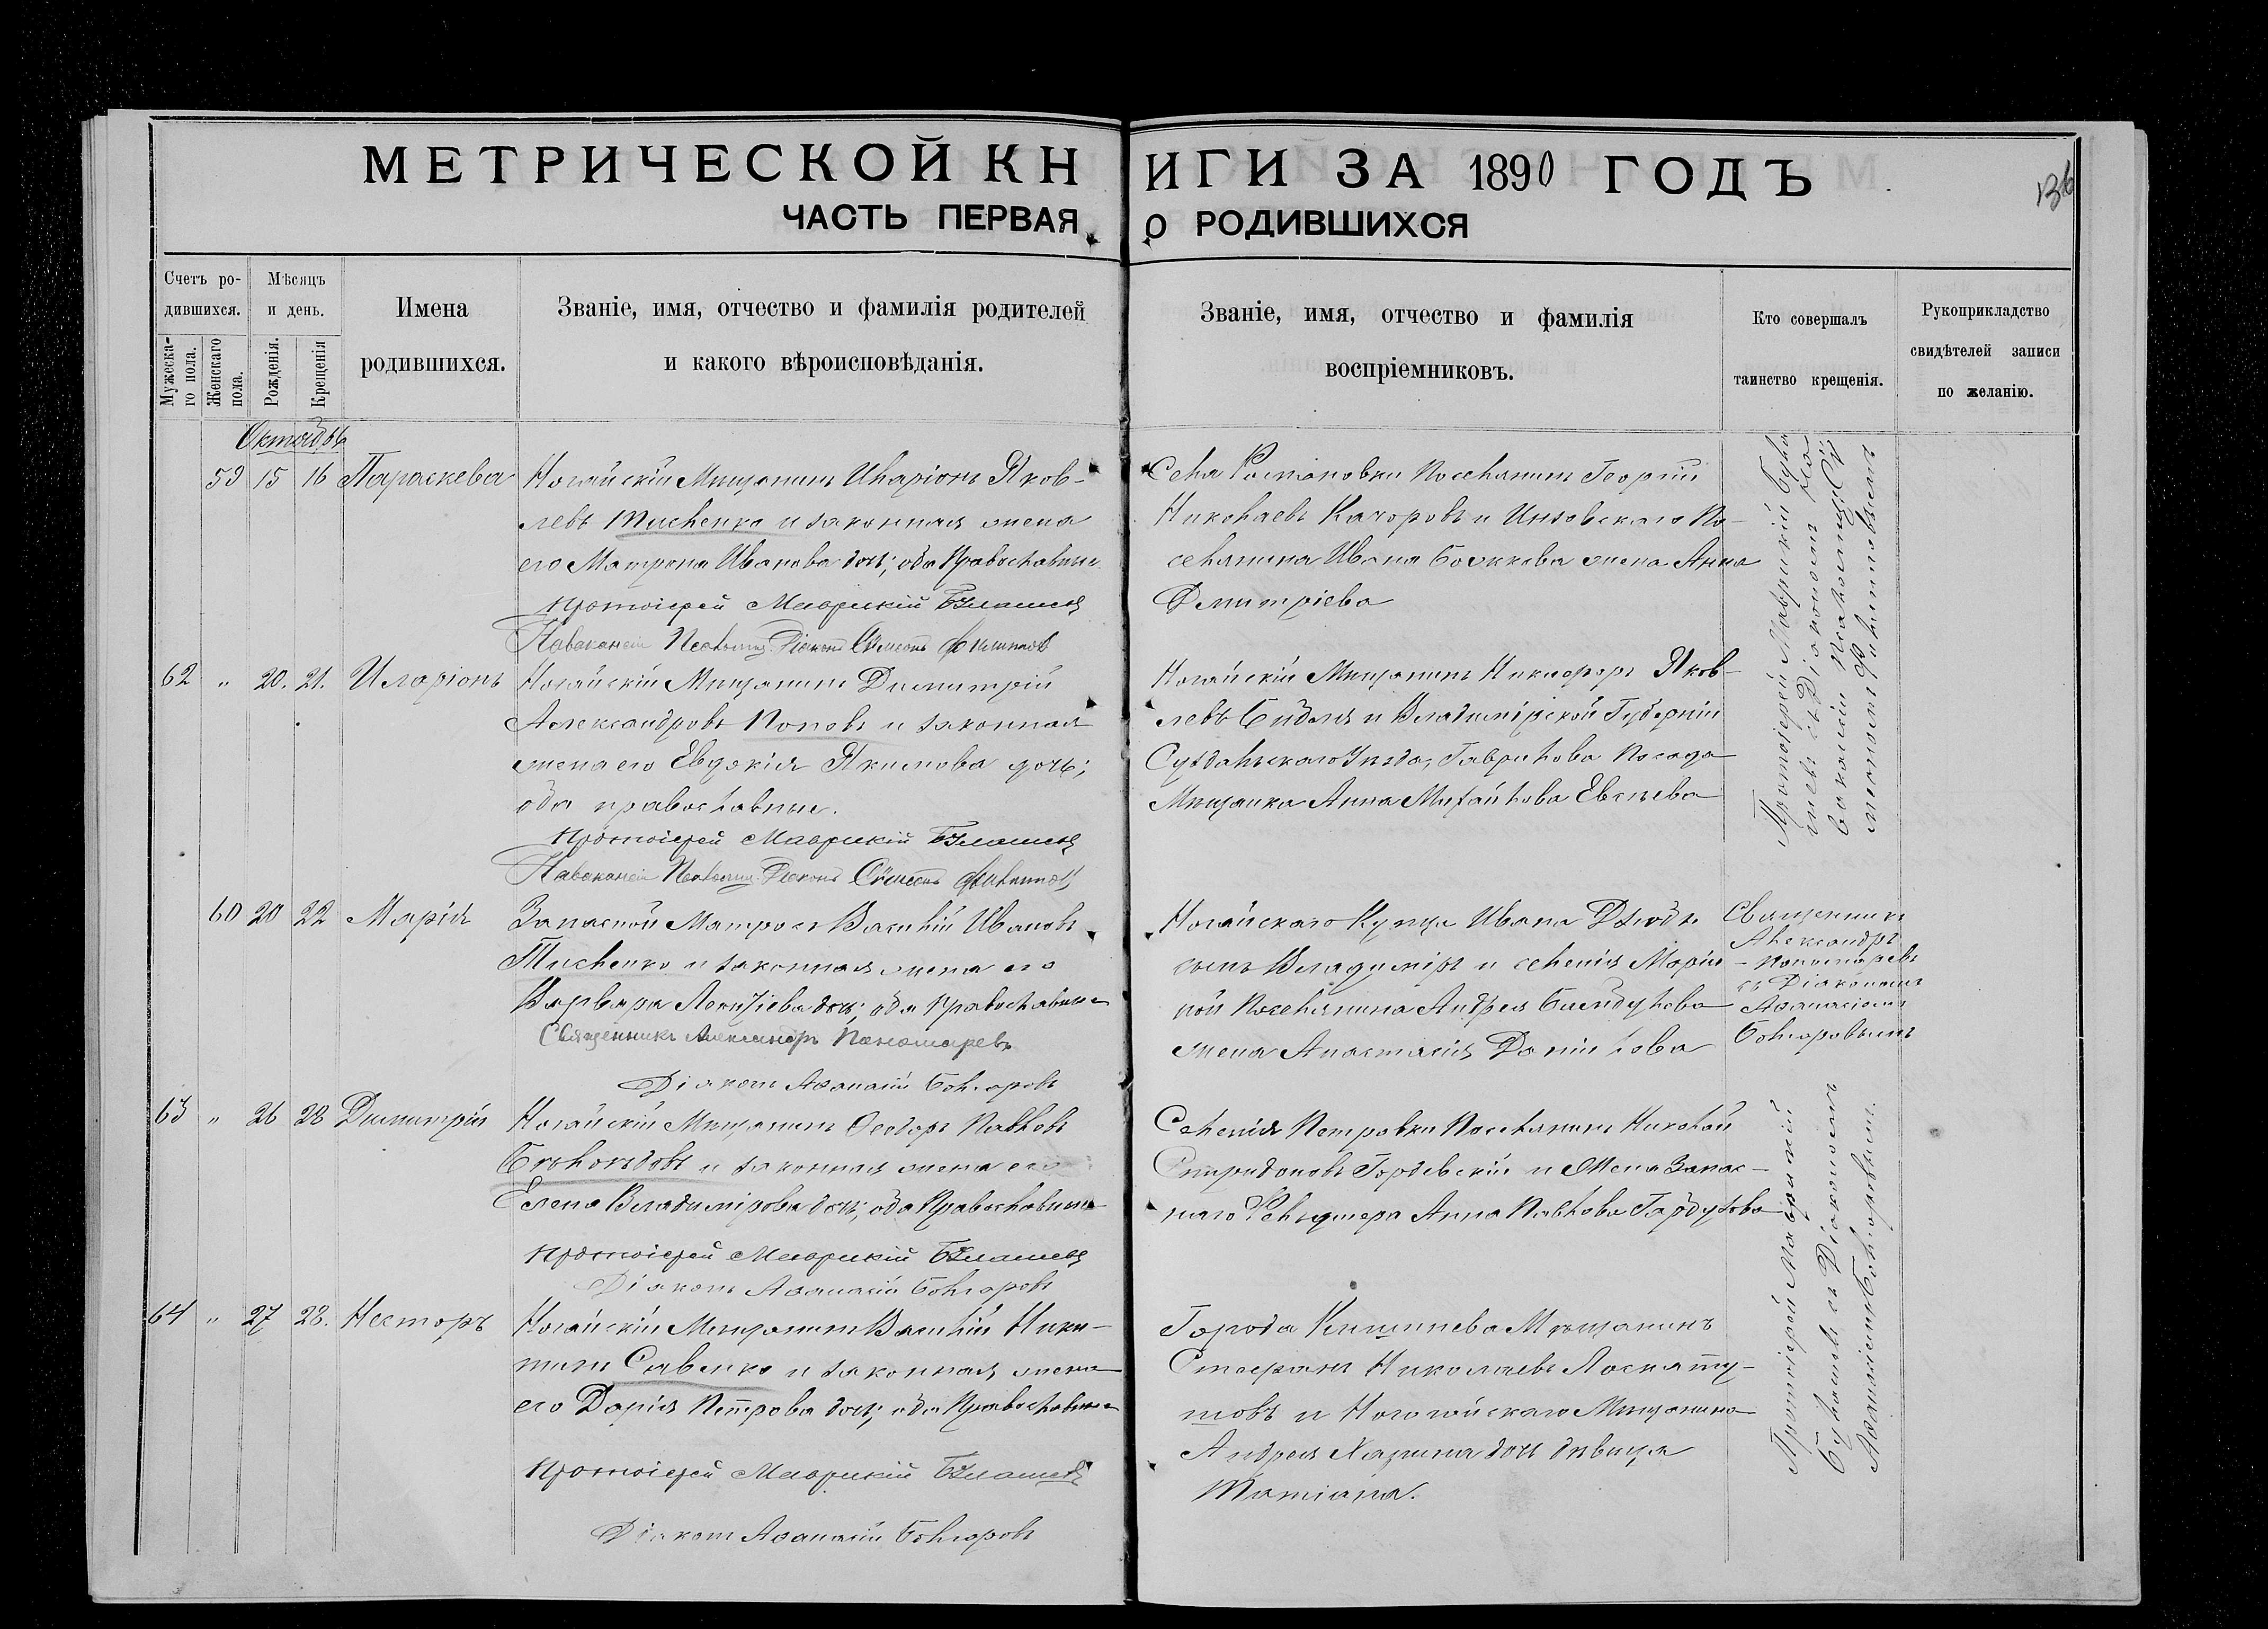 МЕТРИЧЕСКОЙ КНИГИ ЗА 1890 ГОДЪ
136
ЧАСТЬ ПЕРВАЯ, О РОДИВШИХСЯ
Счетъ ро-
дившихся.
Мужеска-
го пола.
Женскаго
пола.
Мѣсяцъ
и день.
Рожденія.
Крещенія
Имена
родившихся.
Званіе, имя, отчество и фамилія родителей
и какого вѣроисповѣданія.
Званіе, имя, отчество и фамилія
воспріемниковъ.
Кто совершалъ
таинство крещенія.
Рукоприкладство
свидѣтелей записи
по желанію.
Октябрь
59 15 16 Параскева
Ногайскій Мищанинъ Иларіонъ Яков-
левъ Тисленко и законная жена
его Матрона Иванова дочь; оба Православные
Протоіерей Маврикій
Псаломщ. Діаконъ Сѵмеонъ Филипповъ
Села Романовки Поселянинъ Георгій
Николаевъ Качоровъ и Инзовскаго По-
селянина Ивана жена Анна
Димитріева
Протоіерей Маврикій
съ Діакономъ
Псаломщ. Сѵ-
меономъ Филипповымъ
62 " 20. 21. Иларіонъ
Ногайскій Мищанинъ Димитрій
Александровъ Поповъ и законная
жена его Евдокія Якимова дочь;
оба православные.
Протоіерей Маврикій
Псаломщ. Діаконъ Сѵмеонъ Филипповъ
Ногайскій Мищанинъ Никифоръ Яков-
левъ и Владимірской Губерніи
Суздальскаго Уѣзда, Гаврилова Посада
Мищанка Анна Михайлова
60 20 22 Марія
Запасной Матросъ Василій Ивановъ
Тисленко и законная жена его
Варвара Леонтіева дочь; оба Православные
Священникъ Александръ Пономаревъ
Діаконъ Аѳанасій Болгаровъ
Ногайскаго Купца Ивана
сынъ Владиміръ и селенія Марьи-
ной Поселянина Андрея
жена Анастасія Даніилова
Священникъ
Александръ
Пономаревъ
съ Діакономъ
Аѳанасіемъ
Болгаровымъ
63 " 26 28 Димитрій
Ногайскій Мищанинъ Ѳеодоръ Павловъ
Бѣлоѣдовъ и законная жена его
Елена Владимірова дочь; оба Православные
Протоіерей Маврикій
Діаконъ Аѳанасій Болгаровъ
Селенія Петровки Поселянинъ Николай
Спиридоновъ и жена Запас-
наго Фельдшера Анна Павлова
Протоіерей Маврикій
съ Діакономъ
Аѳанасіемъ Болгаровымъ.
64 " 27 28. Несторъ
Ногайскій Мищанинъ Василій Ники-
тинъ Савенко и законная жена
его Дарія Петрова дочь; оба Православные
Протоіерей Маврикій
Діаконъ Аѳанасій Болгаровъ
Города Кишинева Мѣщанинъ
Стефанъ Николаевъ Лоскяту-
товъ и Ногайскаго Мищанина
Андрея Харина дочь дѣвица
Татіана.